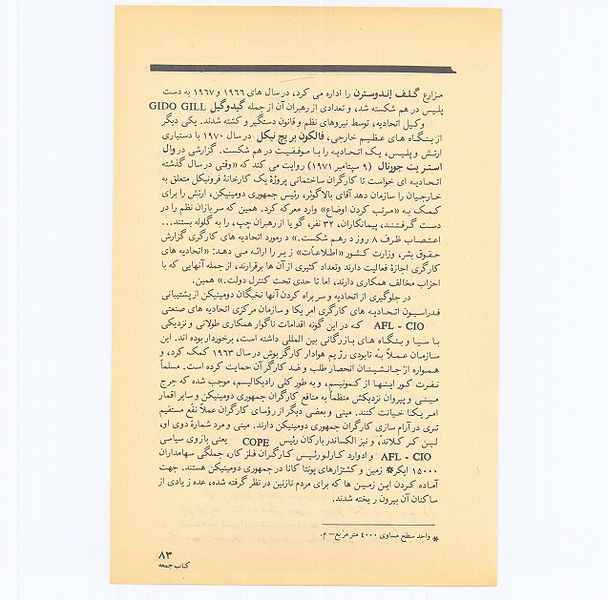 مزارع گلف اندوسترن را اداره می کرد، در سال های ۱۹۶۶ و ۱۹۶۷ به دست
پلیس در هم شکسته شد، و تعدادی از رهبران آن از جمله گیدوگیل GIDO GILL
وکیل اتحادیه، توسط نیروهای نظم و قانون دستگیر و کشته شدند. یکی دیگر
از بنگاه های عظیم خارجی، فالکون بریج نیکل در سال ۱۹۷۰ با دستیاری
ارتش و پلیس، یک اتحادیه را با موفقیت در هم شکست. گزارشی در وال
استریت جورنال (۹ سپتامبر ۱۹۷۱) روایت می کند که «وقتی در سال گذشته
اتحادیه ای خواست تا کارگران ساختمانی پروژهٔ یک کارخانهٔ فرونیکل متعلق به
خارجیان را سازمان دهد آقای بالاگوئر، رئیس جمهوری دومینیکن، ارتش را برای
کمک به «مرتب کردن اوضاع» وارد معرکه کرد. همین که سربازان نظم را در
دست گرفتند، پیمانکاران، ۳۲ نفر، گویا از رهبران چپ، را به گلوله بستند...
اعتصاب ظرف ۸ روز درهم شکست.» درمورد اتحادیه های کارگری گزارش
حقوق بشر، وزارت کشور «اطلاعات» زیر را ارائه می دهد: «اتحادیه های
کارگری اجازهٔ فعالیت دارند وتعداد کثیری از آن ها برقرارند، از جمله آنهایی که با
احزاب مخالف همکاری دارند، اما تا حدی تحت کنترل دولت.» همین.
در جلوگیری از اتحادیه و سر براه کردن آنها نخبگان دومینیکن از پشتیبانی
فدراسیون اتحادیه های کارگری امریکا و سازمان مرکزی اتحادیه های صنعتی
AFL - CIO که در این گونه اقدامات ناگوار همکاری طولانی و نزدیکی
با سیا و بنگاه های بازرگانی بین المللی داشته است، برخوردار بوده اند. این
سازمان عملاً به نابودی رژیم هوادار کارگر بوش در سال ۱۹۶۳ کمک کرد، و
همواره از جانشینان انحصار طلب و ضد کارگر آن حمایت کرده است. مسلماً
نفرت کور اینها از کمونیسم، و به طور کلی رادیکالیسم، موجب شده که جرج
مینی و پیروان نزدیکش منظماً به منافع کارگران جمهوری دومینیکن و سایر اقمار
امریکا خیانت کنند. مینی و بعضی دیگر از رؤسای کارگران عملاً نفع مستقیم
تری در آرام سازی کارگران جمهوری دومینیکن دارند. مینی و مرد شمارهٔ دوی او،
لین کرکلاند، و نیز الکساندر بارکان رئیس COPE یعنی بازوی سیاسی
AFL - CIO و ادوارد کارلو رئیس کارگران فلز کار، جملگی سهامداران
۱۵۰۰۰ ایکر* زمین و کشتزارهای پونتا کانا در جمهوری دومینیکن هستند. جهت
آماده کردن این زمین ها که برای مردم نازنین در نظر گرفته شده، عده زیادی از
ساکنان آن بیرون ریخته شدند.
* واحد سطح مساوی ۴۰۰۰ متر مربع – م.
۸۳
کتاب جمعه